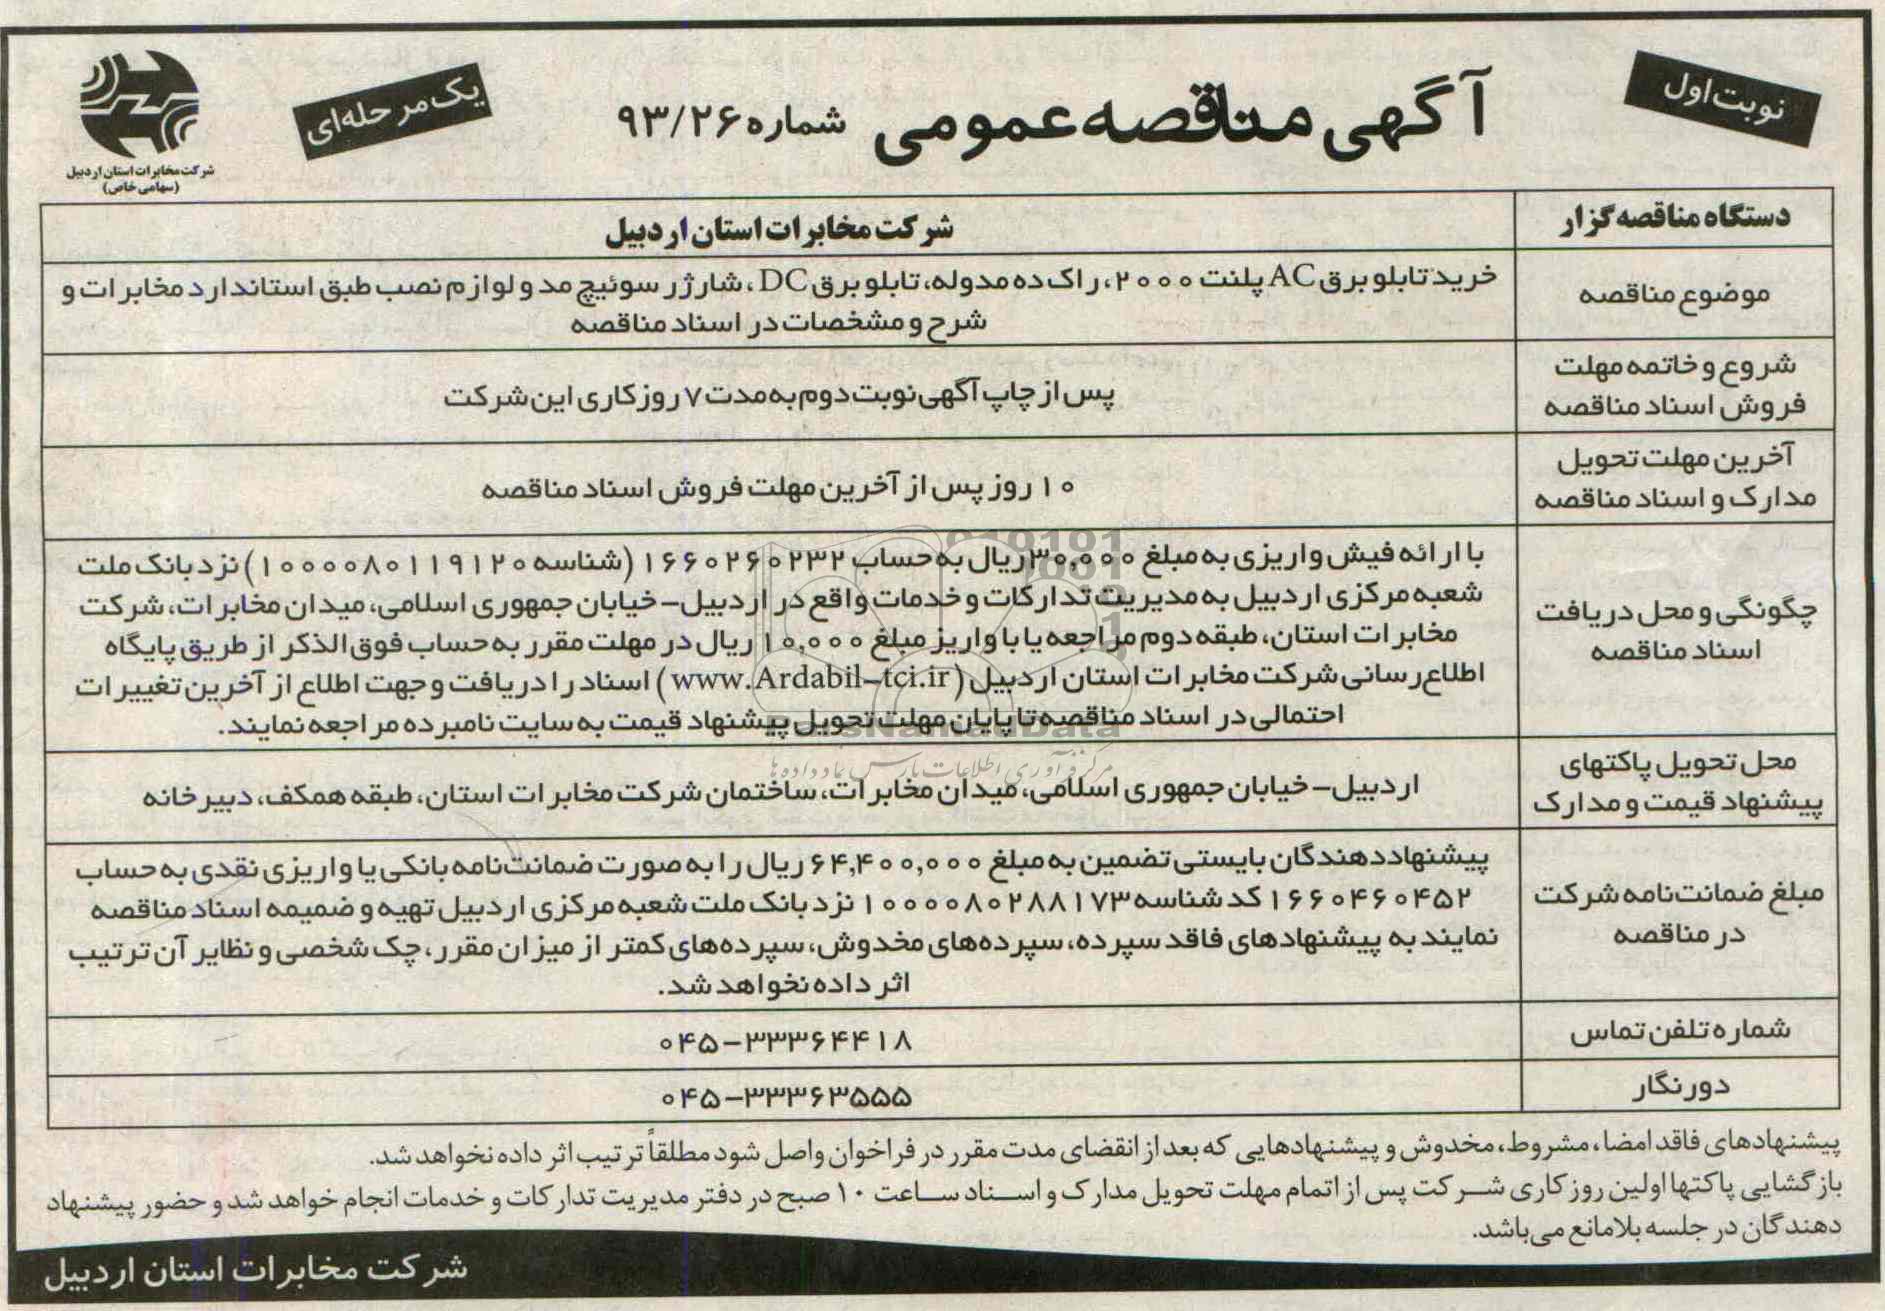 نوبت اول
آگهی مناقصه عمومی شماره ۹۳/۲۶
یک مرحله‌ای
شرکت مخابرات استان اردبیل
(سهامی خاص)
دستگاه مناقصه گزار
شرکت مخابرات استان اردبیل
موضوع مناقصه
خرید تابلو برق AC پلنت ۲۰۰۰، راک ده مدوله، تابلو برق DC، شارژر سوئیچ مد و لوازم نصب طبق استاندارد مخابرات و
شرح و مشخصات در اسناد مناقصه
شروع و خاتمه مهلت
فروش اسناد مناقصه
پس از چاپ آگهی نوبت دوم به مدت ۷ روز کاری این شرکت
آخرین مهلت تحویل
مدارک و اسناد مناقصه
۱۰ روز پس از آخرین مهلت فروش اسناد مناقصه
چگونگی و محل دریافت
اسناد مناقصه
با ارائه فیش واریزی به مبلغ ۳۰,۰۰۰ ریال به حساب ۱۶۶۰۲۶۰۲۳۲ (شناسه ۱۰۰۰۰۸۰۱۱۹۱۲۰) نزد بانک ملت
شعبه مرکزی اردبیل به مدیریت تدارکات و خدمات واقع در اردبیل– خیابان جمهوری اسلامی، میدان مخابرات، شرکت
مخابرات استان، طبقه دوم مراجعه یا با واریز مبلغ ۱۰,۰۰۰ ریال در مهلت مقرر به حساب فوق الذکر از طریق پایگاه
اطلاع‌رسانی شرکت مخابرات استان اردبیل (www.Ardabil-tci.ir) اسناد را دریافت و جهت اطلاع از آخرین تغییرات
احتمالی در اسناد مناقصه تا پایان مهلت تحویل پیشنهاد قیمت به سایت نامبرده مراجعه نمایند.
مرکز فرآوری اطلاعات پارس نماد داده‌ها
محل تحویل پاکتهای
پیشنهاد قیمت و مدارک
اردبیل– خیابان جمهوری اسلامی، میدان مخابرات، ساختمان شرکت مخابرات استان، طبقه همکف، دبیرخانه
مبلغ ضمانت‌نامه شرکت
در مناقصه
پیشنهاددهندگان بایستی تضمین به مبلغ ۶۴,۴۰۰,۰۰۰ ریال را به صورت ضمانت‌نامه بانکی یا واریزی نقدی به حساب
۱۶۶۰۴۶۰۴۵۲ کد شناسه ۱۰۰۰۰۸۰۲۸۸۱۷۳ نزد بانک ملت شعبه مرکزی اردبیل تهیه و ضمیمه اسناد مناقصه
نمایند به پیشنهادهای فاقد سپرده، سپرده‌های مخدوش، سپرده‌های کمتر از میزان مقرر، چک شخصی و نظایر آن ترتیب
اثر داده نخواهد شد.
شماره تلفن تماس
۰۴۵–۳۳۳۶۴۴۱۸
دورنگار
۰۴۵–۳۳۳۶۳۵۵۵
پیشنهادهای فاقد امضا، مشروط، مخدوش و پیشنهادهایی که بعد از انقضای مدت مقرر در فراخوان واصل شود مطلقاً ترتیب اثر داده نخواهد شد.
بازگشایی پاکتها اولین روز کاری شرکت پس از اتمام مهلت تحویل مدارک و اسناد ساعت ۱۰ صبح در دفتر مدیریت تدارکات و خدمات انجام خواهد شد و حضور پیشنهاد
دهندگان در جلسه بلامانع می‌باشد.
شرکت مخابرات استان اردبیل